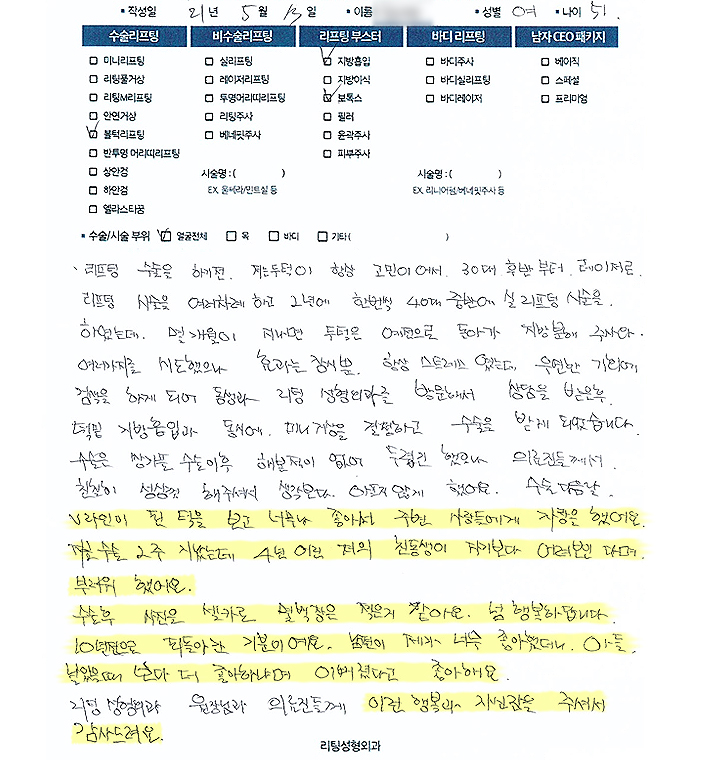 • 작성일 21년 5월 13일 • 이름 • 성별 여 • 나이 51
수술리프팅 비수술리프팅 리프팅 부스터 바디 리프팅 남자 CEO 패키지
미니리프팅 실리프팅 지방흡입 바디주사 베이직
리팅풀거상 레이저리프팅 지방이식 바디실리프팅 스페셜
리팅M리프팅 투명머리띠리프팅 보톡스 바디레이저 프리미엄
안면거상 리팅주사 필러
볼턱리프팅 베네핏주사 윤곽주사
반투명 머리띠리프팅 피부주사
상안검 시술명 : ( ) 시술명 : ( )
하안검 EX. 울쎄라/민트실 등 EX. 리니어펌/베네핏주사 등
엘라스타꿈
• 수술/시술 부위 얼굴전체 목 바디 기타( )
리프팅 수술을 하기전. 저는 두턱이 항상 고민이어서. 30대 후반부터. 레이저로.
리프팅 시술을 여러차례 하고 2년에 한번씩 40대 중반에 실리프팅 시술을.
하였는데. 몇개월이 지나면 두턱은 예전으로 돌아가 지방분해 주사와.
여러가지를 시도했으나 효과는 잠시뿐. 항상 스트레스 였는데. 우연한 기회에
검색을 하게 되어 동생과 리팅 성형외과를 방문해서 상담을 받은후.
턱밑 지방흡입과 동시에. 미니거상을 결정하고 수술을 받게 되었습니다.
수술은 쌍가풀 수술이후 해본적이 없어 두렵긴 했으나 의료진들께서.
친절히 성심껏 해주셔서 생각보다. 아프지 않게 했어요. 수술 다음날.
V라인이 된 턱을 보고 너무나 좋아서 주변 사람들에게 자랑을 했어요.
지금 수술 2주 지났는데 4년 어린 저의 친동생이 자기보다 어려보인다며.
부러워 했어요.
수술후 사진을 셀카로 몇백장은 찍은거 같아요. 넘 행복하답니다.
10년전으로 되돌아간 기분이예요. 남편이 제가 너무 좋아했더니. 아들.
낳았을때 보다 더 좋아하냐며 이뻐졌다고 좋아해요.
리팅 성형외과 원장님과 의료진들께 이런 행복과 자신감을 주셔서
감사드려요.
리팅성형외과